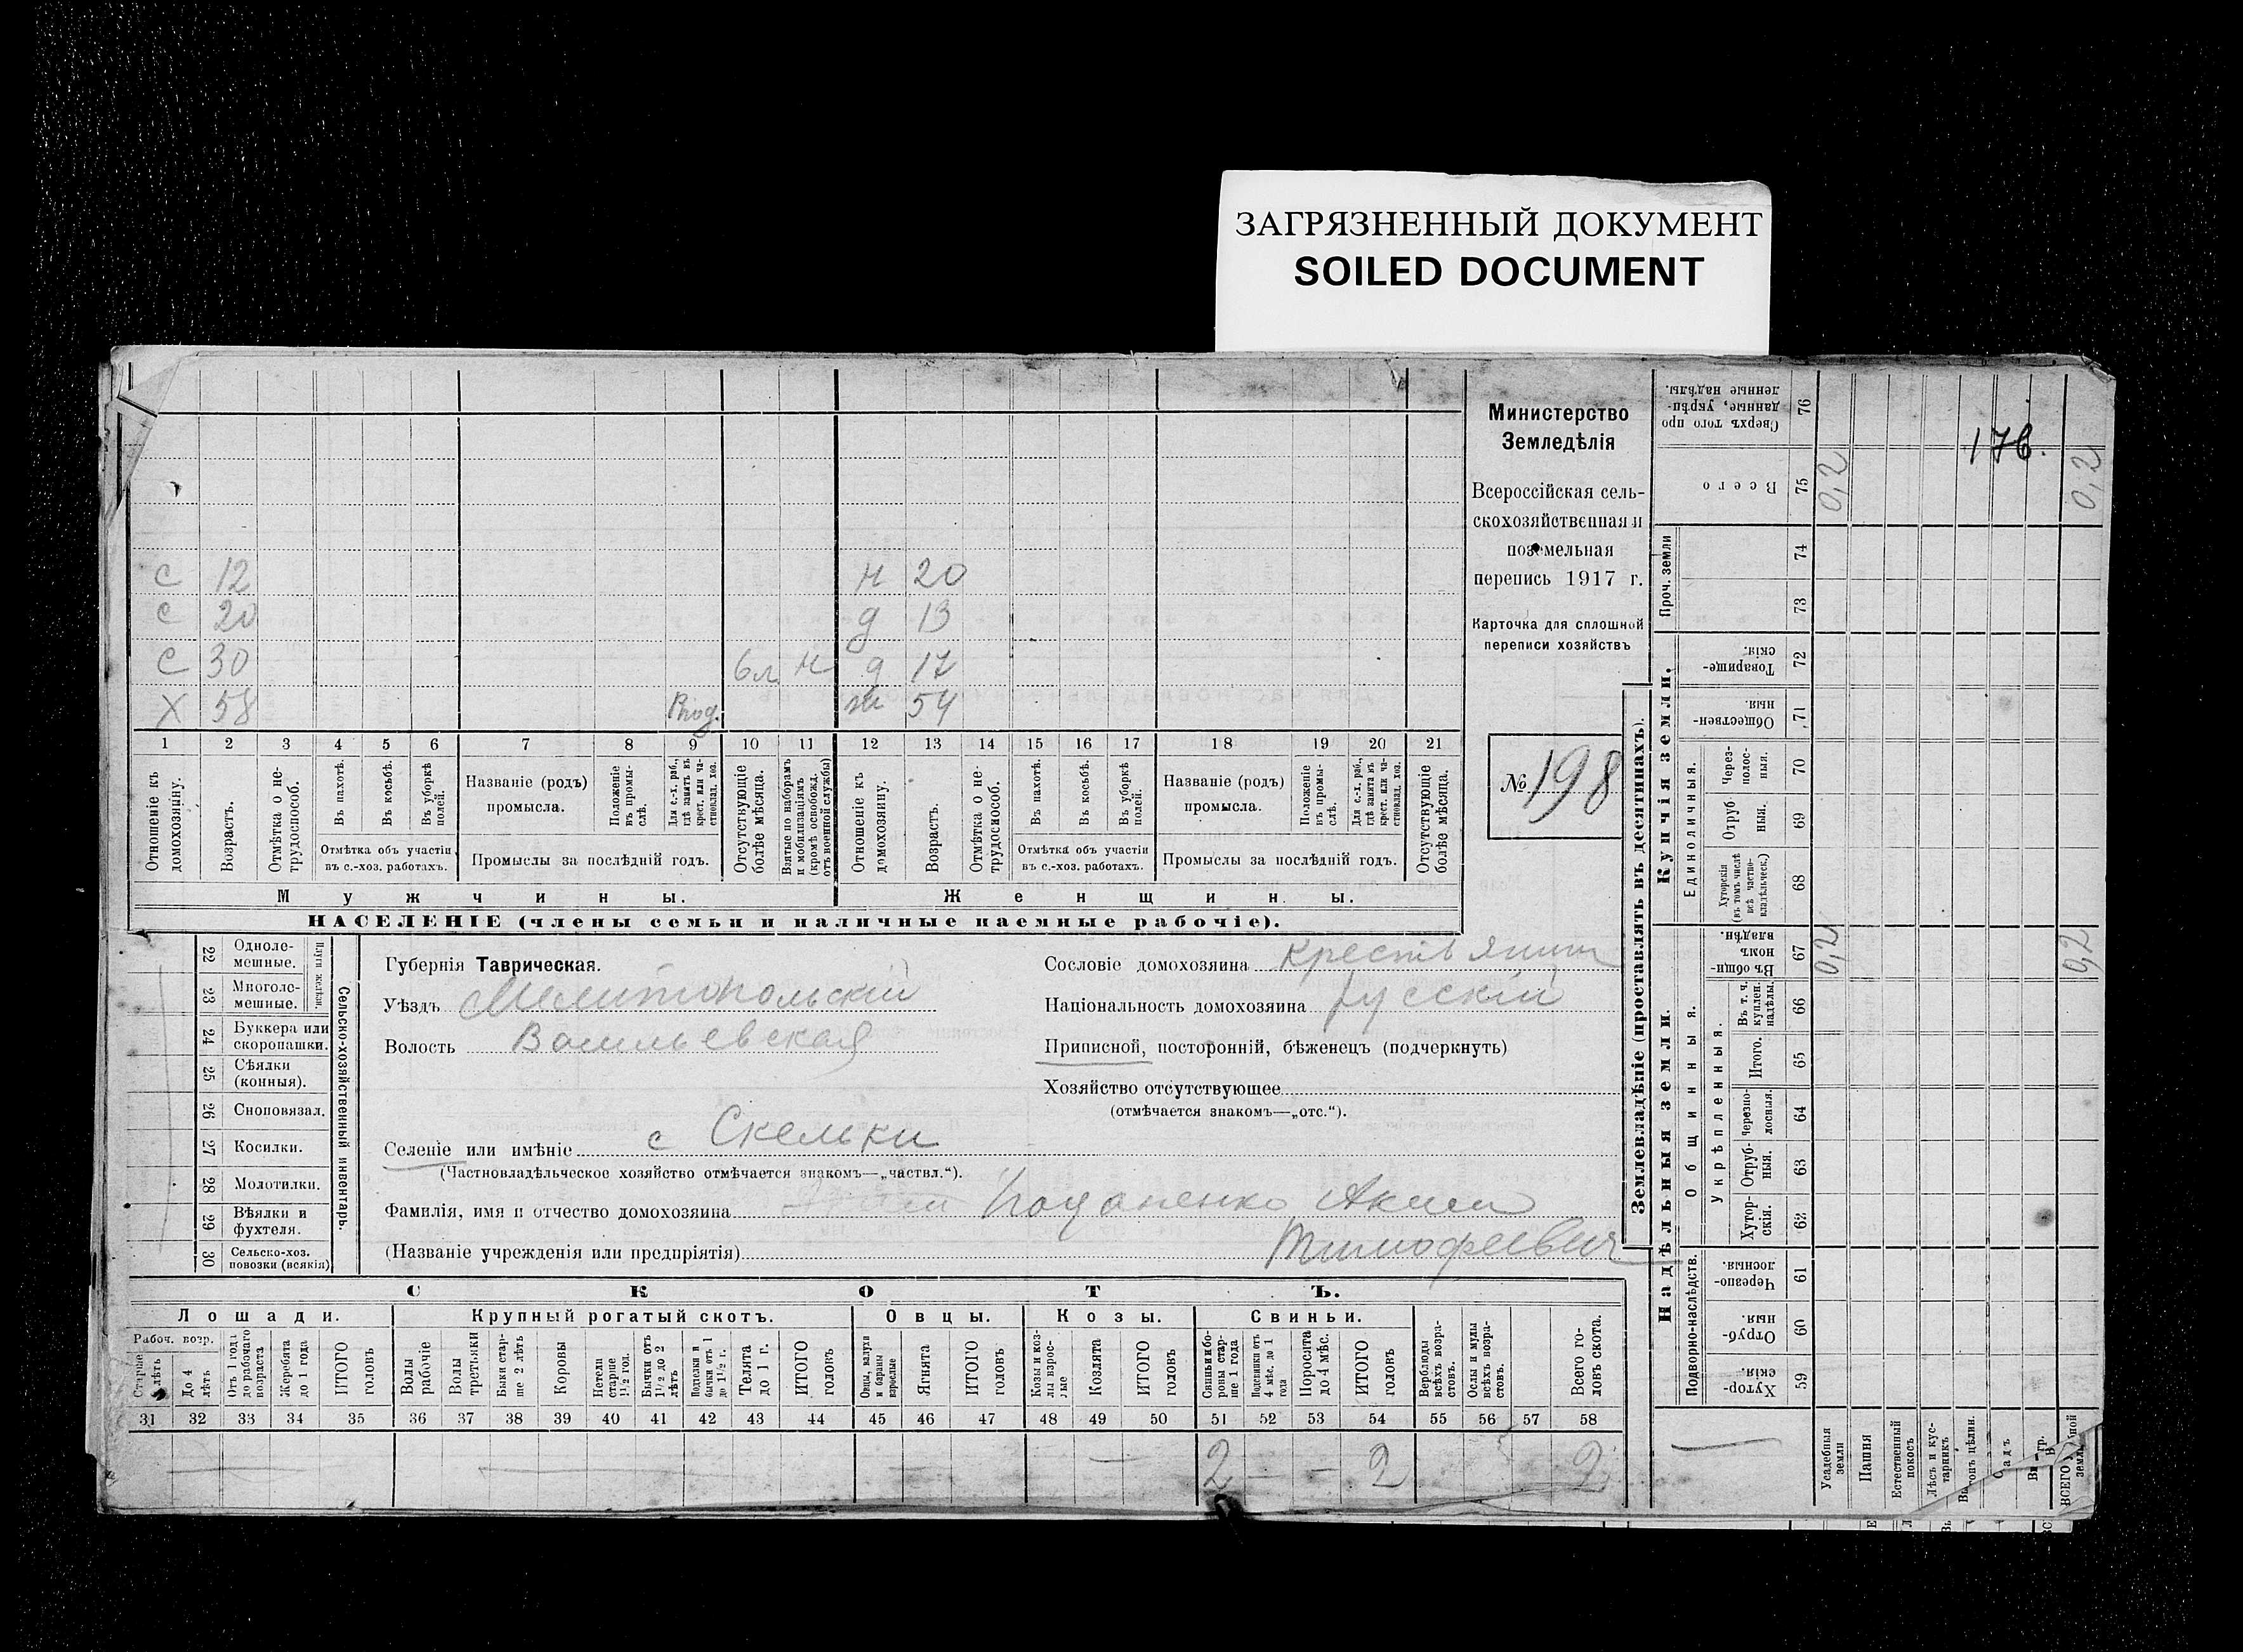 ЗАГРЯЗНЕННЫЙ ДОКУМЕНТ
SOILED DOCUMENT
с 12 н 20
с 20 д 13
с 30 н д 17
х 58 ж 54
1 2 3 4 5 6 7 8 9 10 11 12 13 14 15 16 17 18 19 20 21
Отношеніе къ домохозяину.
Возрастъ.
Отмѣтка о нетрудоспособ.
Въ пахотѣ.
Въ косьбѣ.
Въ уборкѣ полей.
Отмѣтка объ участіи въ с.-хоз. работахъ.
Названіе (родъ) промысла.
Положеніе въ промыслѣ.
Для с.-х. раб., гдѣ занятъ въ крест. или частновлад. хоз.
Промыслы за послѣдній годъ.
Отсутствующіе болѣе мѣсяца.
Взятые по наборамъ и мобилизаціямъ (кромѣ освобожд. отъ военной службы)
Отношеніе къ домохозяину.
Возрастъ.
Отмѣтка о нетрудоспособ.
Въ пахотѣ.
Въ косьбѣ.
Въ уборкѣ полей.
Отмѣтка объ участіи въ с.-хоз. работахъ.
Названіе (родъ) промысла.
Положеніе въ промыслѣ.
Для с.-х. раб., гдѣ занята въ крест. или частновлад. хоз.
Промыслы за послѣдній годъ.
Отсутствующіе болѣе мѣсяца.
Мужчины. Женщины.
НАСЕЛЕНІЕ (члены семьи и наличные наемные рабочіе).
Министерство
Земледѣлія
Всероссійская сель-
скохозяйственная и
поземельная
перепись 1917 г.
Карточка для сплошной
переписи хозяйствъ
№ 198
22 Одноле-
мешные.
23 Многоле-
мешные.
Плуги желѣзн.
24 Буккера или
скоропашки.
25 Сѣялки
(конныя).
26 Сноповязал.
27 Косилки.
28 Молотилки.
29 Вѣялки и
фухтеля.
30 Сельско-хоз.
повозки (всякія)
Сельско-хозяйственный инвентарь.
Губернія Таврическая.
Уѣздъ Мелитопольскій
Волость Васильевская
Селеніе или имѣніе с Скельки
(Частновладѣльческое хозяйство отмѣчается знакомъ—„частвл.“).
Фамилія, имя и отчество домохозяина Аким
(Названіе учрежденія или предпріятія) Тимофеевич
Сословіе домохозяина крестьянин
Національность домохозяина русскій
Приписной, посторонній, бѣженецъ (подчеркнуть)
Хозяйство отсутствующее
(отмѣчается знакомъ—„отс.“).
СКОТЪ.
Лошади. Крупный рогатый скотъ. Овцы. Козы. Свиньи.
Рабоч. возр.
Старше лѣтъ
До 4 лѣтъ
Отъ 1 года до рабочаго возраста
Жеребята до 1 года
ИТОГО головъ
Волы рабочіе
Волы третьяки
Быки старше 2 лѣтъ
Коровы
Нетели старше 1½ год.
Бычки отъ 1½ до 2 лѣтъ
Подтелки и бычки отъ 1 до 1½ г.
Телята до 1 г.
ИТОГО головъ
Овцы, валухи и бараны взрослые
Ягнята
ИТОГО головъ
Козы и козлы взрослые
Козлята
ИТОГО головъ
Свиньи и боровы старше 1 года
Подсвинки отъ 4 мѣс. до 1 года
Поросята до 4 мѣс.
ИТОГО головъ
Верблюды всѣхъ возрастовъ.
Ослы и мулы всѣхъ возрастовъ.
Всего головъ скота.
31 32 33 34 35 36 37 38 39 40 41 42 43 44 45 46 47 48 49 50 51 52 53 54 55 56 57 58
— — — 2 — — 2 2
Землевладѣніе (проставлять въ десятинахъ).
Надѣльныя земли. Купчія земли.
Подворно-наслѣдств.
Общинныя.
Укрѣпленныя.
Единоличныя.
Проч. земли
Сверхъ того проданные, укрѣпленные надѣлы. 76
Всего 75 0,2 0,2
74
73
Товарищескія. 72
Общественныя. 71
Черезполосныя. 70
Отрубныя. 69
Хуторскія (въ томъ числѣ всѣ частновладѣльческ.) 68
Въ общинномъ владѣн. 67 0,2 0,2
Въ т. ч. куплен. надѣлы. 66
Итого. 65
Черезполосныя. 64
Отрубныя. 63
Хуторскія. 62
Черезполосныя. 61
Отрубныя. 60
Хуторскія. 59
Усадебныя земли
Пашня
Естественный покосъ
Лѣсъ и кустарникъ
176.